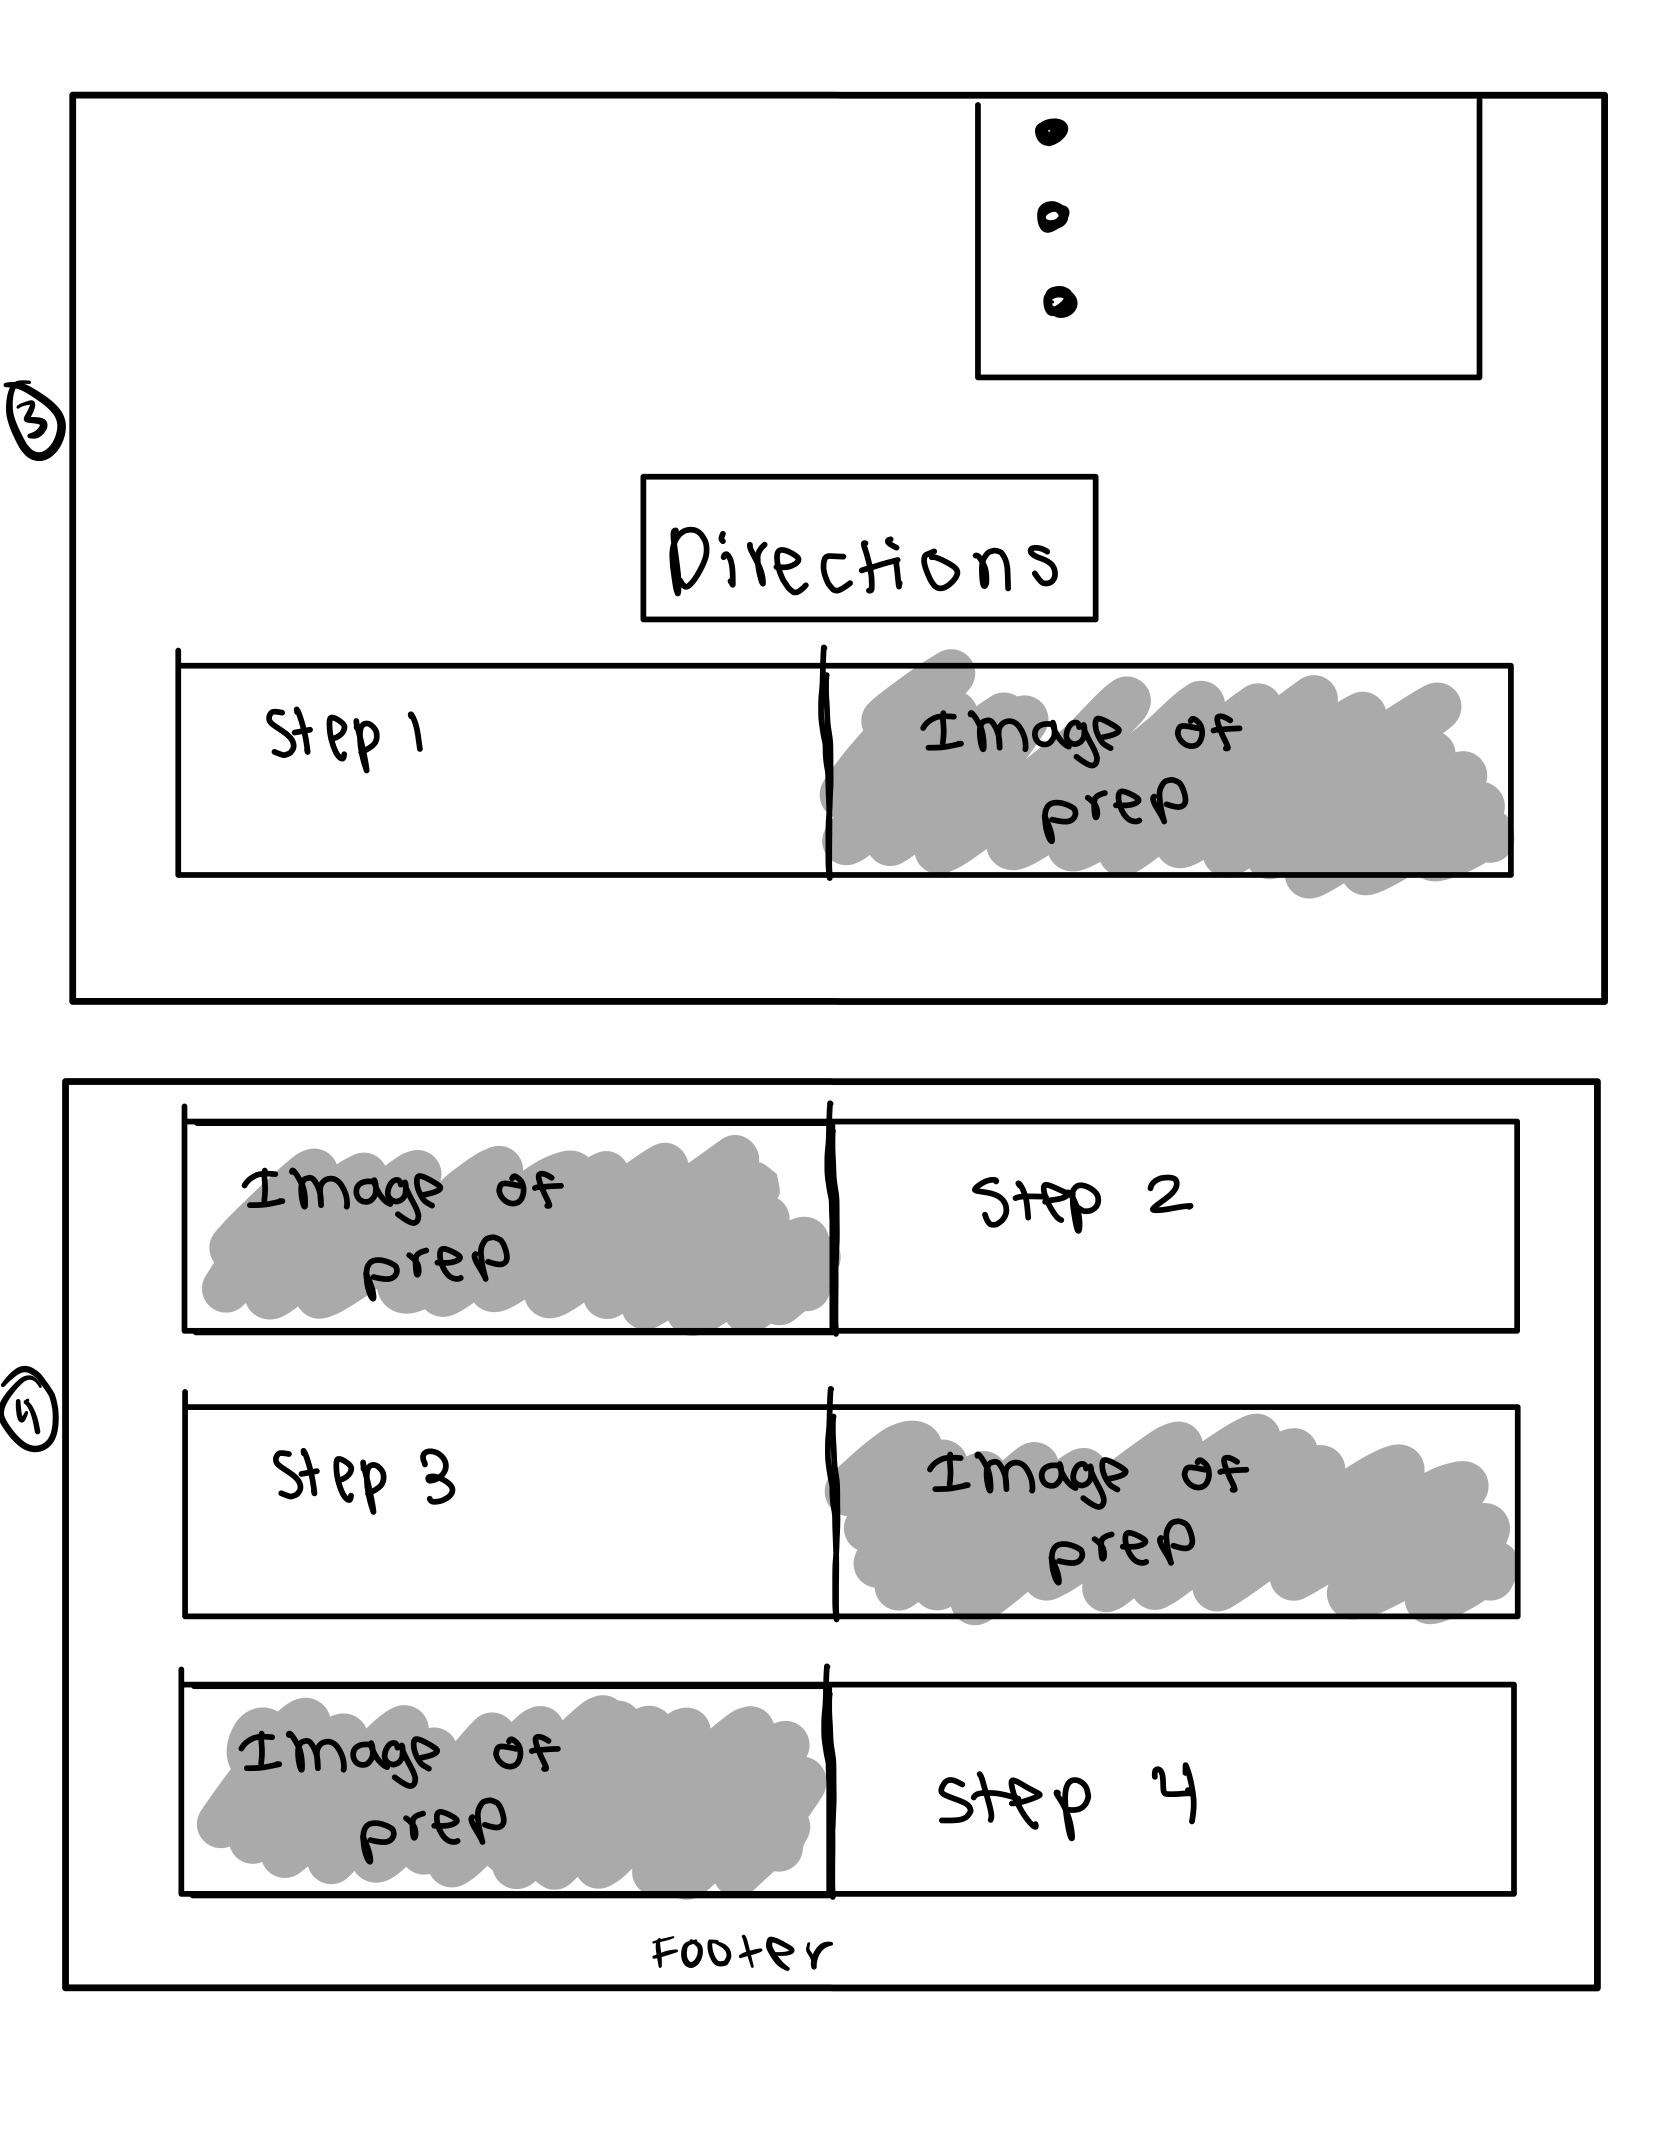 3
Directions
Step 1
Image of
prep
4
Image of
prep
Step 2
Step 3
Image of
prep
Image of
prep
Step 4
Footer